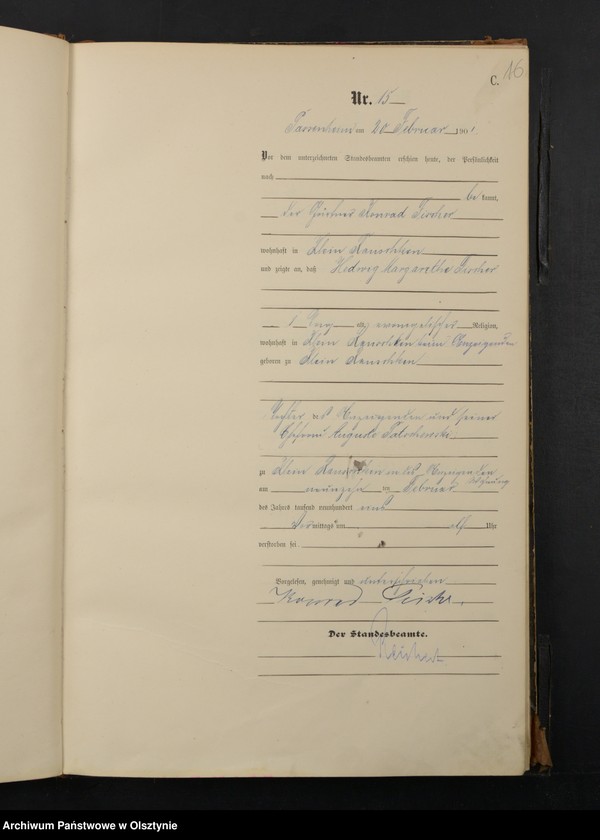 C. 16
Nr. 15
Passenheim am 20 Februar 1901.
Vor dem unterzeichneten Standesbeamten erschien heute, der Persönlichkeit
nach
be kannt,
der Gärtner Konrad Fischer
wohnhaft in Klein Rauschken
und zeigte an, daß Hedwig Margarethe Fischer
1 evangelischer Religion,
wohnhaft in Klein Rauschken beim Anzeigenden
geboren zu Klein Rauschken
Tochter des Anzeigenden und seiner
Ehefrau Auguste
zu Klein Rauschken in des Anzeigenden
Wohnung
am neunzehn ten Februar
des Jahres tausend neunhundert eins
Vor mittags um elf Uhr
verstorben sei
Vorgelesen, genehmigt und unterschrieben
Konrad Fischer.
Der Standesbeamte.
Archiwum Państwowe w Olsztynie